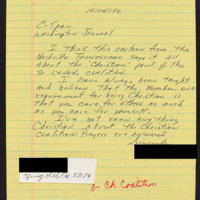 10/10/96
C-Span
Washington Journal
I think this cartoon from the
Nashville Tennessean says it all
about the "Christian" part of the
so called, coalition.
I have always been taught
and believe that the number one
requirement for being Christian
is that you care for others as much
as you care for yourself.
I've not seen anything
Christian about the Christian
Coalition
Sincerely
Ch Coalition